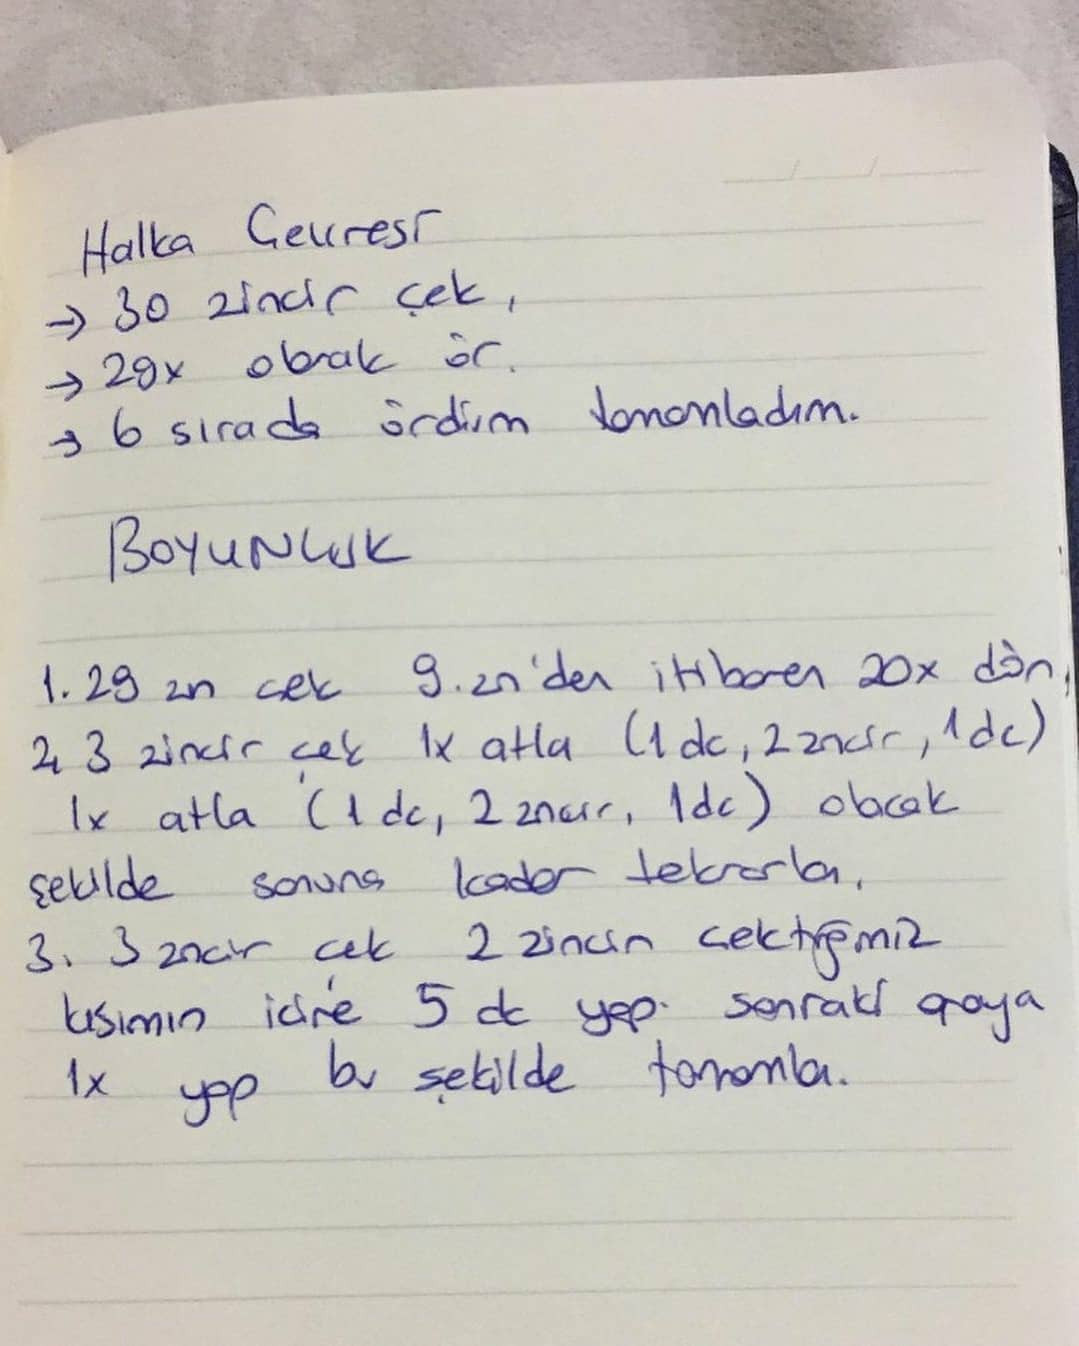 Halka Çevresi
→ 30 zincir çek,
→ 29x olarak ör.
→ 6 sırada ördüm tamamladım.
BOYUNLUK
1. 29 zn çek 9.zn'den itibaren 20x dön,
2, 3 zincir çek 1x atla (1 dc, 2 zncır, 1dc)
1x atla (1 dc, 2 zncır, 1dc) olacak
şekilde sonuna kadar tekrarla,
3. 3 zncir çek 2 zincirin çektiğimiz
kısımın içine 5 dc yap. sonraki araya
1x yap bu şekilde tamamla.